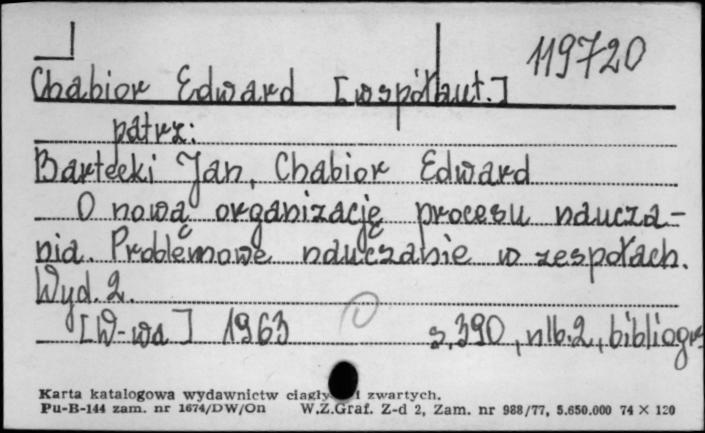 119720
Chabior Edward [współaut.]
patrz:
Bartecki Jan, Chabior Edward
O nową organizację procesu naucza-
nia. Problemowe nauczanie w zespołach.
Wyd. 2.
[W-wa] 1963 s. 390, nlb. 2, bibliogr
Karta katalogowa wydawnictw ciągły i zwartych.
Pu-B-144 zam. nr 1674/DW/On W.Z.Graf. Z-d 2, Zam. nr 988/77, 5.650.000 74 X 120